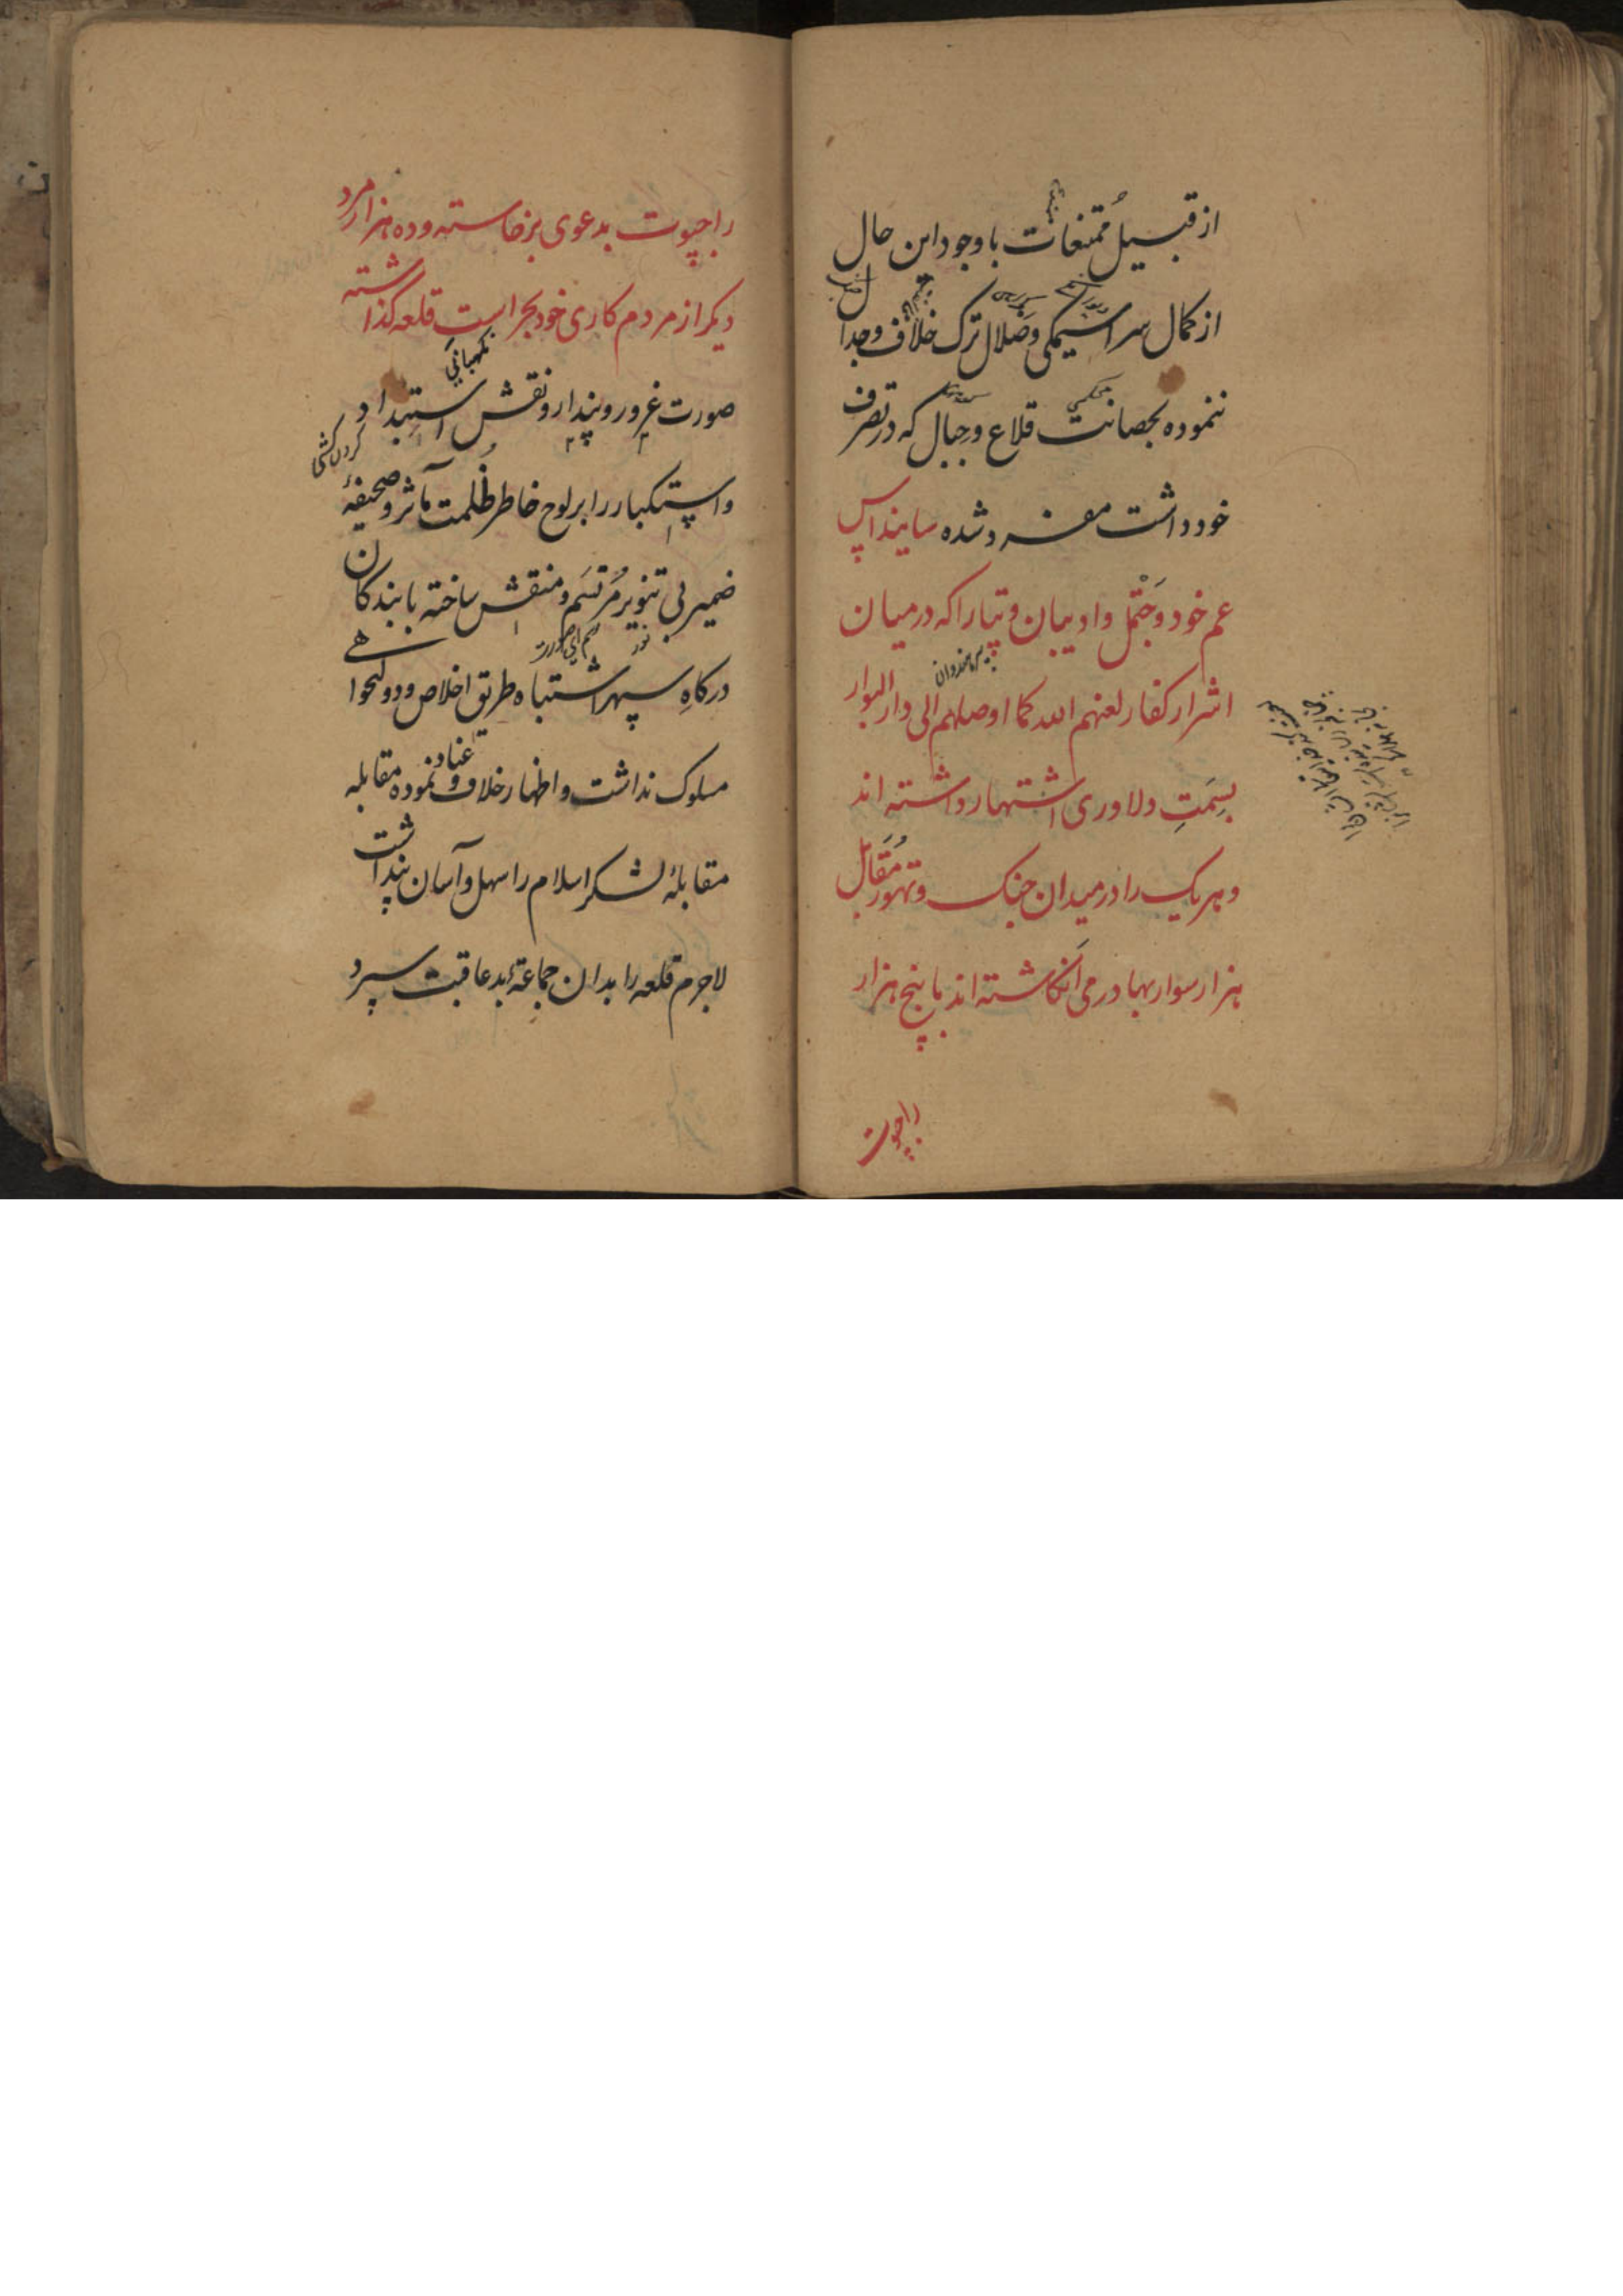 از قبیل مُمتنعات با وجود این حال
از کمال سراسیمکی وضَلال ترک خلاف وجدال
ننموده بحصانت قلاع وجبال که در تصرف
خود داشت مغرور شده ساینداس
عم خود وجَتْمل وادیبان وپتارا که در میان
اشرار کفار لعنهم الله کما اوصلهم الی دار البوار
بسِمَتِ دلاوری اشتهار داشته اند
وهر یک را در میدان جنک وتهور مُقَابل
هزار سوار بهادر می انکاشته اند با پنج هزار
راجپوت
راجپوت بدعوی برخاسته وده هزار مرد
دیکر از مردم کاری خود بحراست قلعه کذاشته
نکهبانی
صورت غرور وپندار ونقش استبداد
کردن کشی
واستکبار را بر لوح خاطر ظُلمت مآثر وصحیفهٔ
ضمیر بی تنویر مُرتسَم ومنتقش ساخته با بندکان
نور
درکاهِ سپهر اشتباه طریق اخلاص ودولتخواهی
مسلوک نداشت واظهار خلاف وعناد نموده مقابله
مقابلهٔ لشکر اسلام را سهل وآسان پنداشت
لاجرم قلعه را بدان جماعهٔ بدعاقبت سپرد